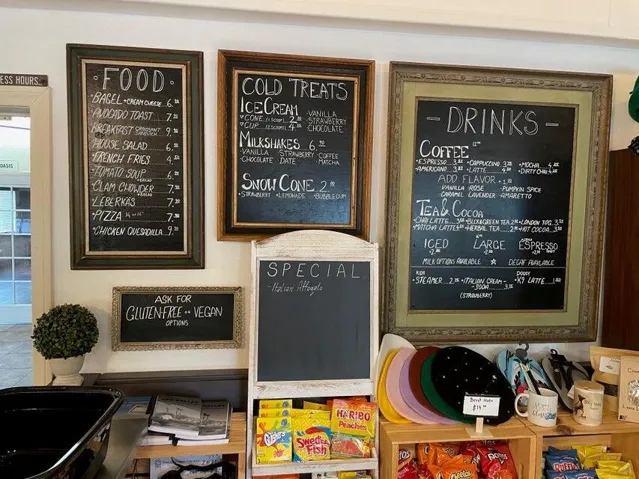 ESS HOURS
- FOOD -
BAGEL +CREAM CHEESE 6.
AVOCADO TOAST 7.
BREAKFAST CROISSANT SANDWICH 9.
HOUSE SALAD 6.
FRENCH FRIES 4.
TOMATO SOUP 6.
+BREAD
CLAM CHOWDER 7.
+BREAD
LEBERKÄS 7.
PIZZA 7.
CHICKEN QUESADILLA 9.
ASK FOR
GLUTEN-FREE OR VEGAN
OPTIONS
COLD TREATS
ICE CREAM
VANILLA
STRAWBERRY
CHOCOLATE
CONE (1 SCOOP) 2.
CUP (2 SCOOP) 4.
MILKSHAKES 6.
VANILLA STRAWBERRY COFFEE
CHOCOLATE DATE MATCHA
SNOW CONE 2.
STRAWBERRY LEMONADE BUBBLEGUM
SPECIAL
- Italian Affogato
- DRINKS -
COFFEE
ESPRESSO CAPPUCCINO MOCHA
AMERICANO LATTE DIRTY CHAI
ADD FLAVOR +1
VANILLA ROSE PUMPKIN SPICE
CARAMEL LAVENDER AMARETTO
TEA & COCOA
CHAI LATTE BLK&GREEN TEA LONDON FOG
MATCHA LATTE HERBAL TEA HOT COCOA
ICED LARGE ESPRESSO
MILK OPTIONS AVAILABLE DECAF AVAILABLE
KIDS
STEAMER ITALIAN CREAM SODA
(STRAWBERRY)
DOGGY
K9 LATTE
SWEDISH FISH
HARIBO
Peaches
Beret Hats
$14
Doritos